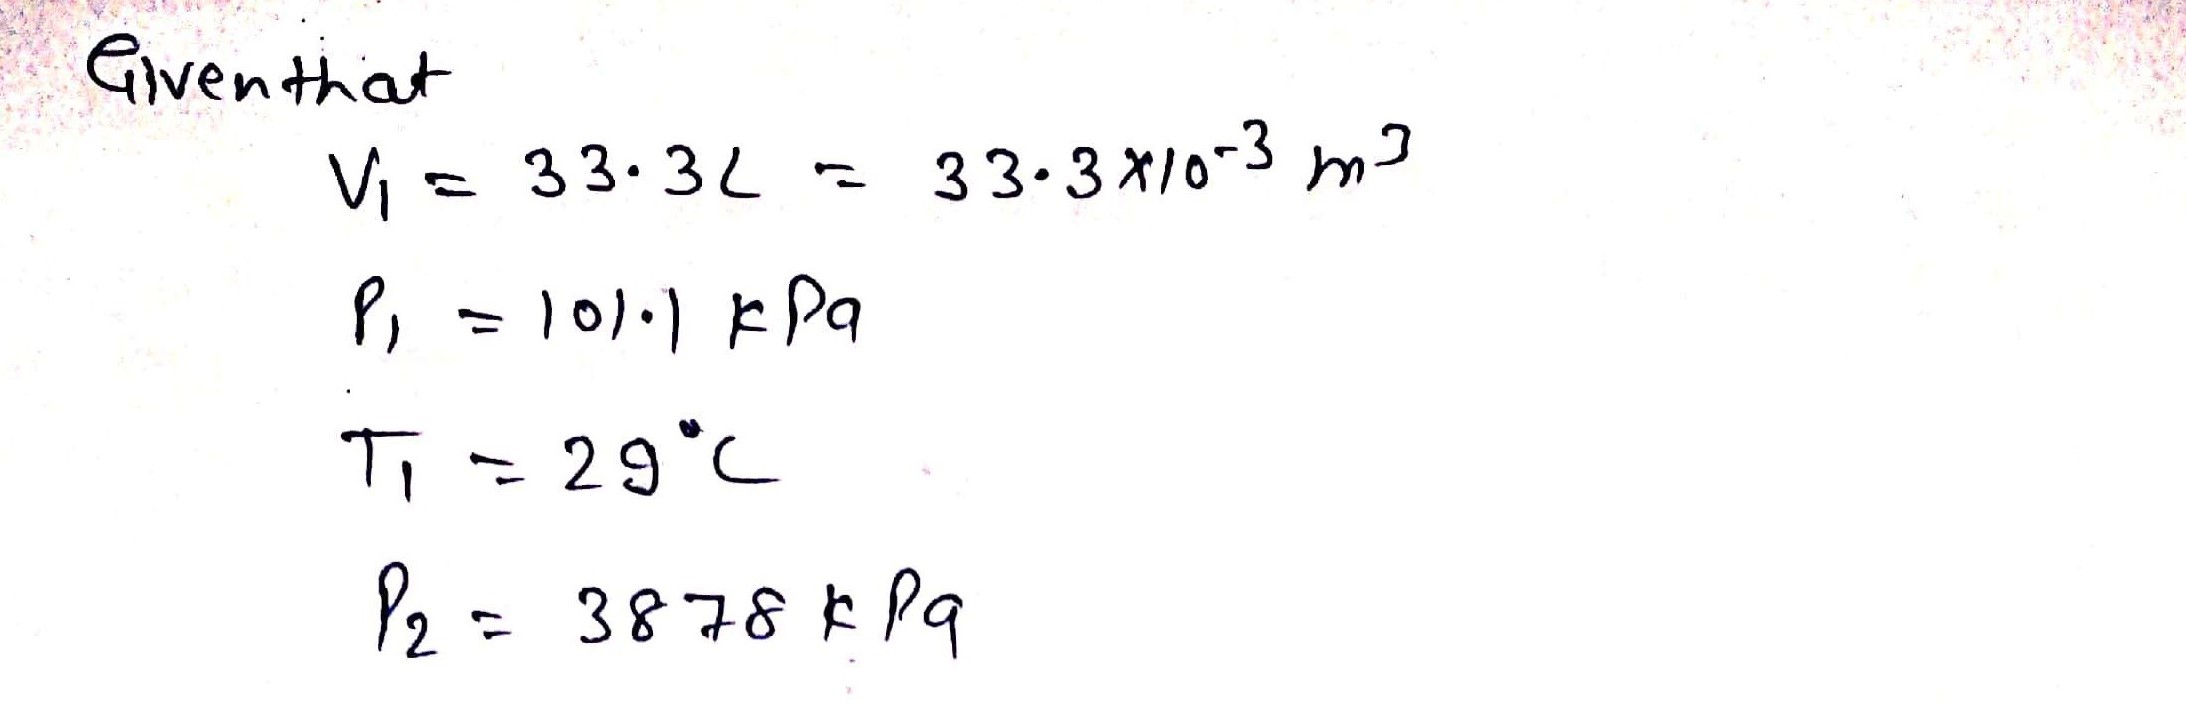 Given that
V₁ = 33.3L = 33.3×10⁻³ m³
P₁ = 101.1 kPa
T₁ = 29°C
P₂ = 3878 kPa